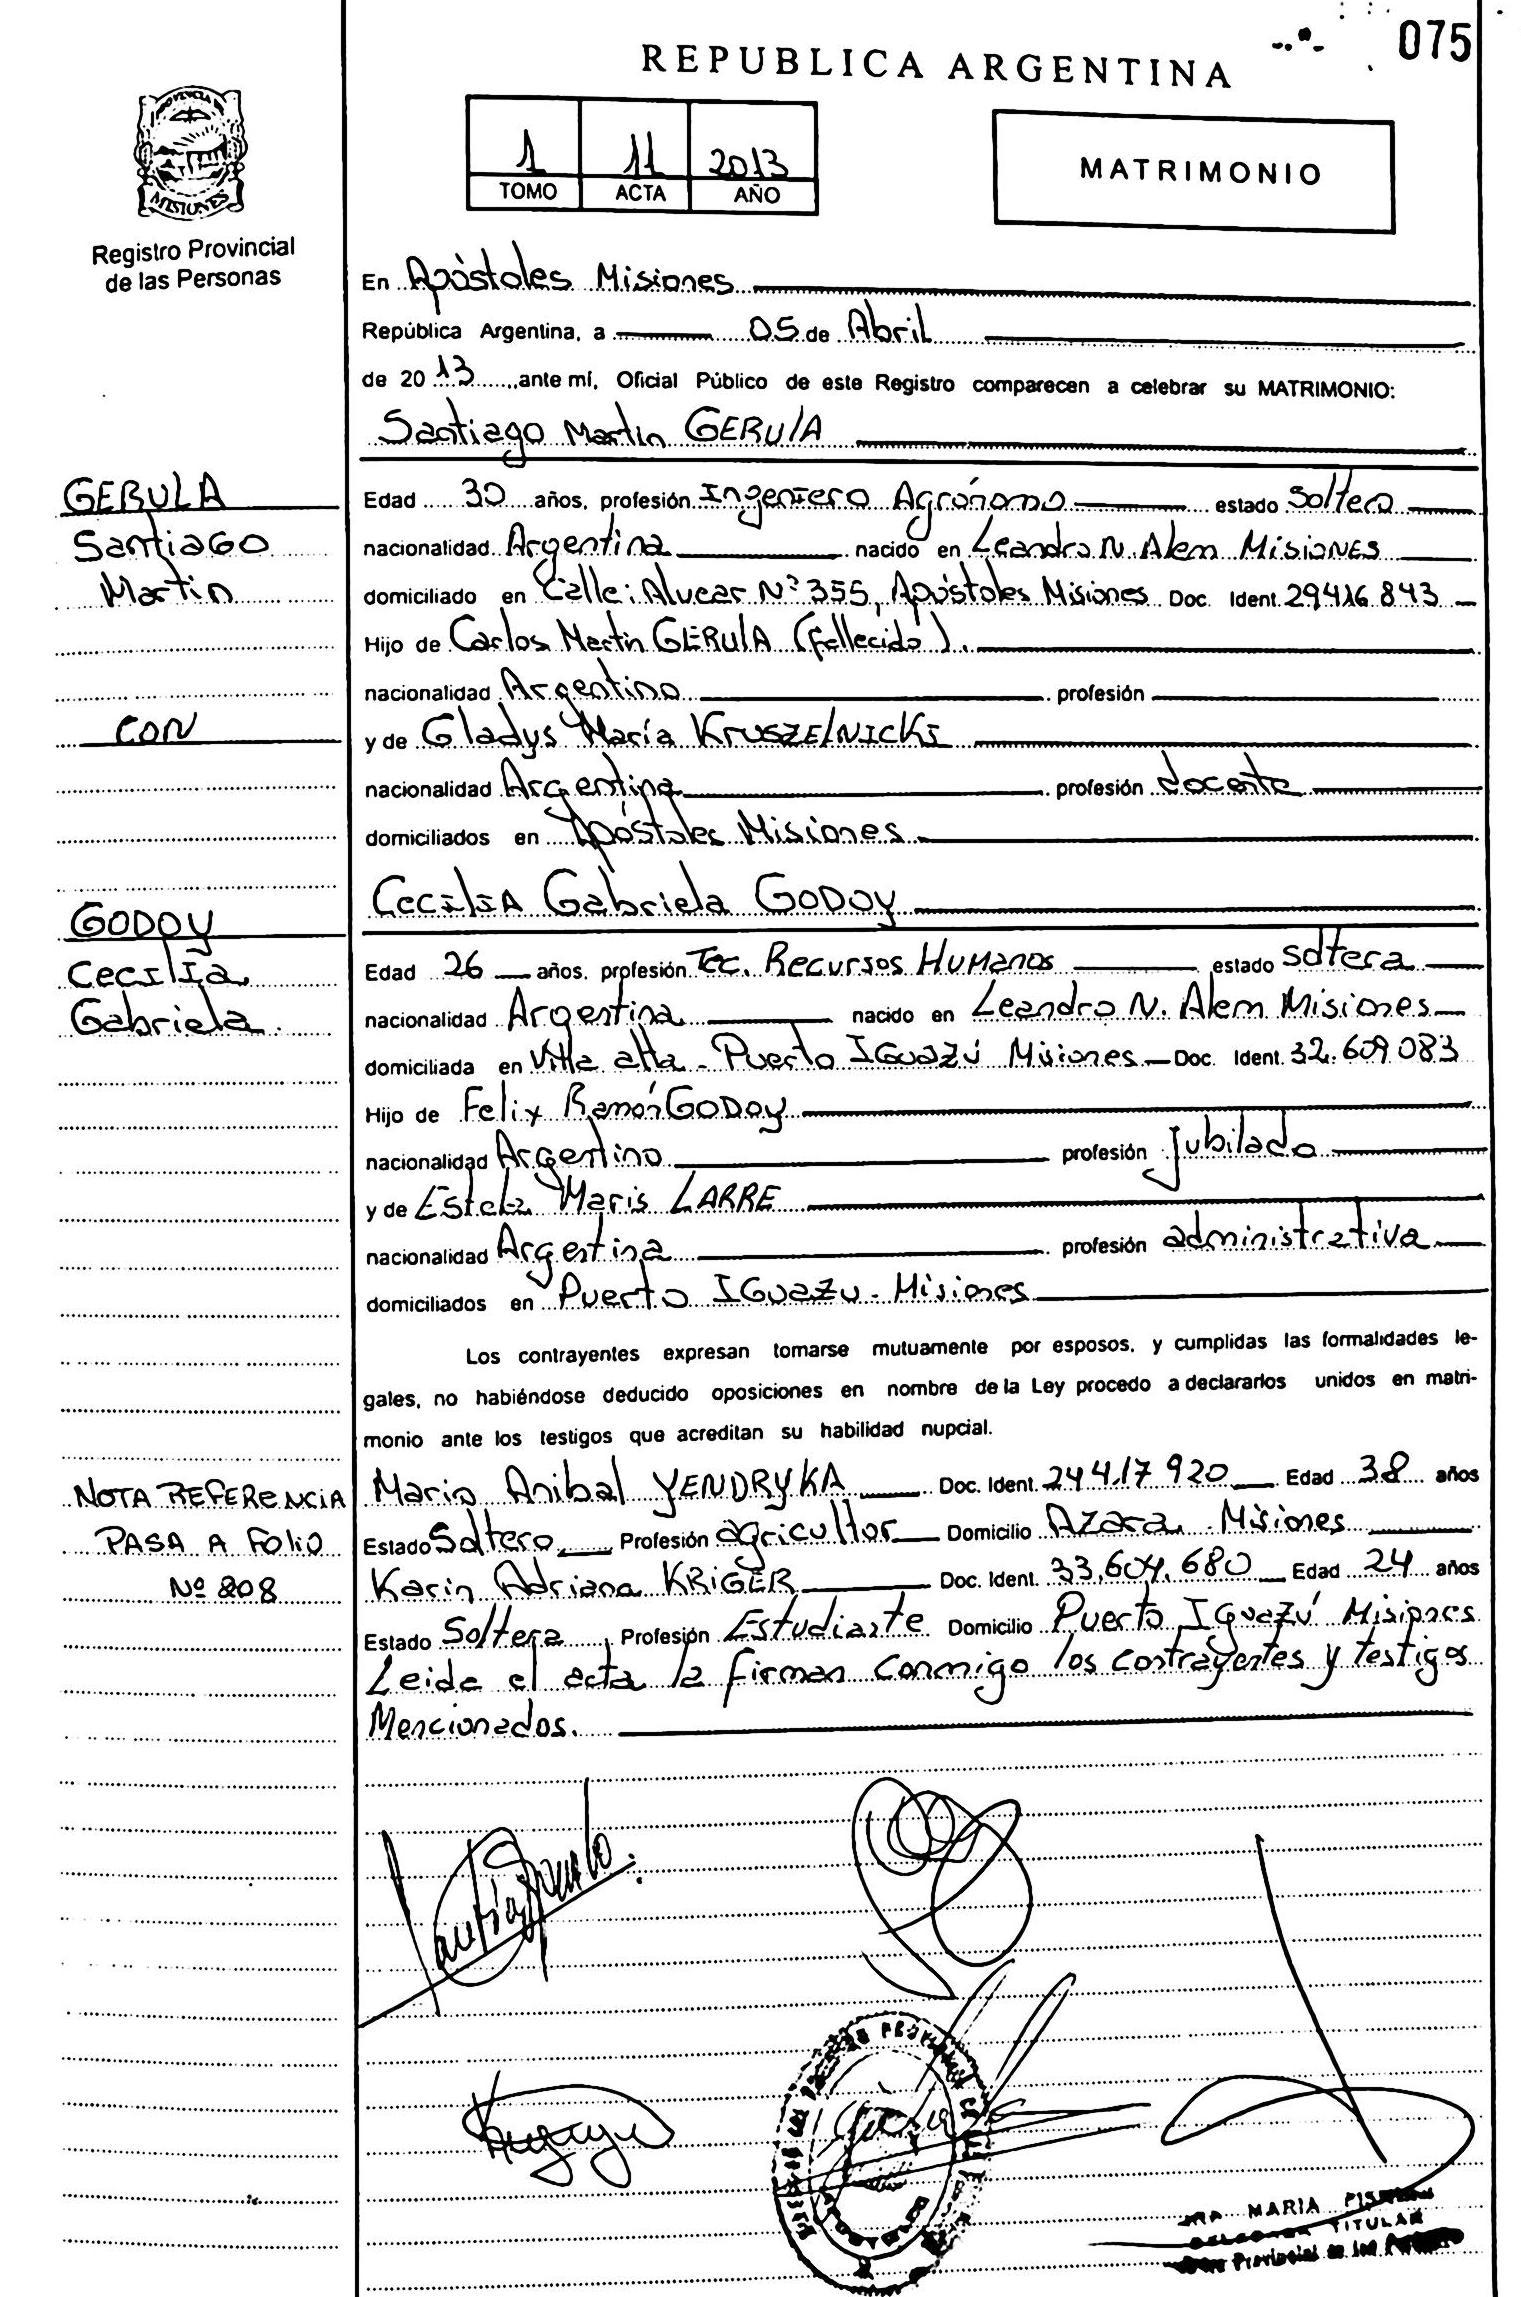 075
REPUBLICA ARGENTINA
PROVINCIA DE
MISIONES
Registro Provincial
de las Personas
1 11 2013
TOMO ACTA AÑO
MATRIMONIO
En Apóstoles Misiones
República Argentina, a 05 de Abril
de 2013 ante mí, Oficial Público de este Registro comparecen a celebrar su MATRIMONIO:
Santiago Martin GERULA
GERULA
Santiago
Martin
CON
Edad 30 años, profesión Ingeniero Agrónomo estado Soltero
nacionalidad Argentina nacido en Leandro N. Alem Misiones
domiciliado en Calle: Alvear N° 355, Apóstoles Misiones Doc. Ident. 29416843
Hijo de Carlos Martin GERULA (fallecido).
nacionalidad Argentino profesión
y de Gladys María KRUSZELNICKI
nacionalidad Argentina profesión docente
domiciliados en Apóstoles Misiones
Cecilia Gabriela GODOY
GODOY
Cecilia
Gabriela.
Edad 26 años, profesión Tec. Recursos Humanos estado soltera
nacionalidad Argentina nacido en Leandro N. Alem Misiones
domiciliada en Villa alta - Puerto Iguazú Misiones Doc. Ident. 32.609.083
Hijo de Felix Ramón GODOY
nacionalidad Argentino profesión jubilado
y de Estela Maris LARRE
nacionalidad Argentina profesión administrativa
domiciliados en Puerto Iguazu - Misiones
Los contrayentes expresan tomarse mutuamente por esposos, y cumplidas las formalidades le-
gales, no habiéndose deducido oposiciones en nombre de la Ley procedo a declararlos unidos en matri-
monio ante los testigos que acreditan su habilidad nupcial.
NOTA REFERENCIA
PASA A FOLIO
Nº 208
Mario Anibal YENDRYKA Doc. Ident. 24417920 Edad 38 años
Estado Soltero Profesión agricultor Domicilio Azara - Misiones
Karin Adriana KRIGER Doc. Ident. 33.604.680 Edad 24 años
Estado Soltera Profesión Estudiante Domicilio Puerto Iguazú Misiones
Leida el acta la firman conmigo los contrayentes y testigos
Mencionados.
MARIA
TITULAR
Provincial de las